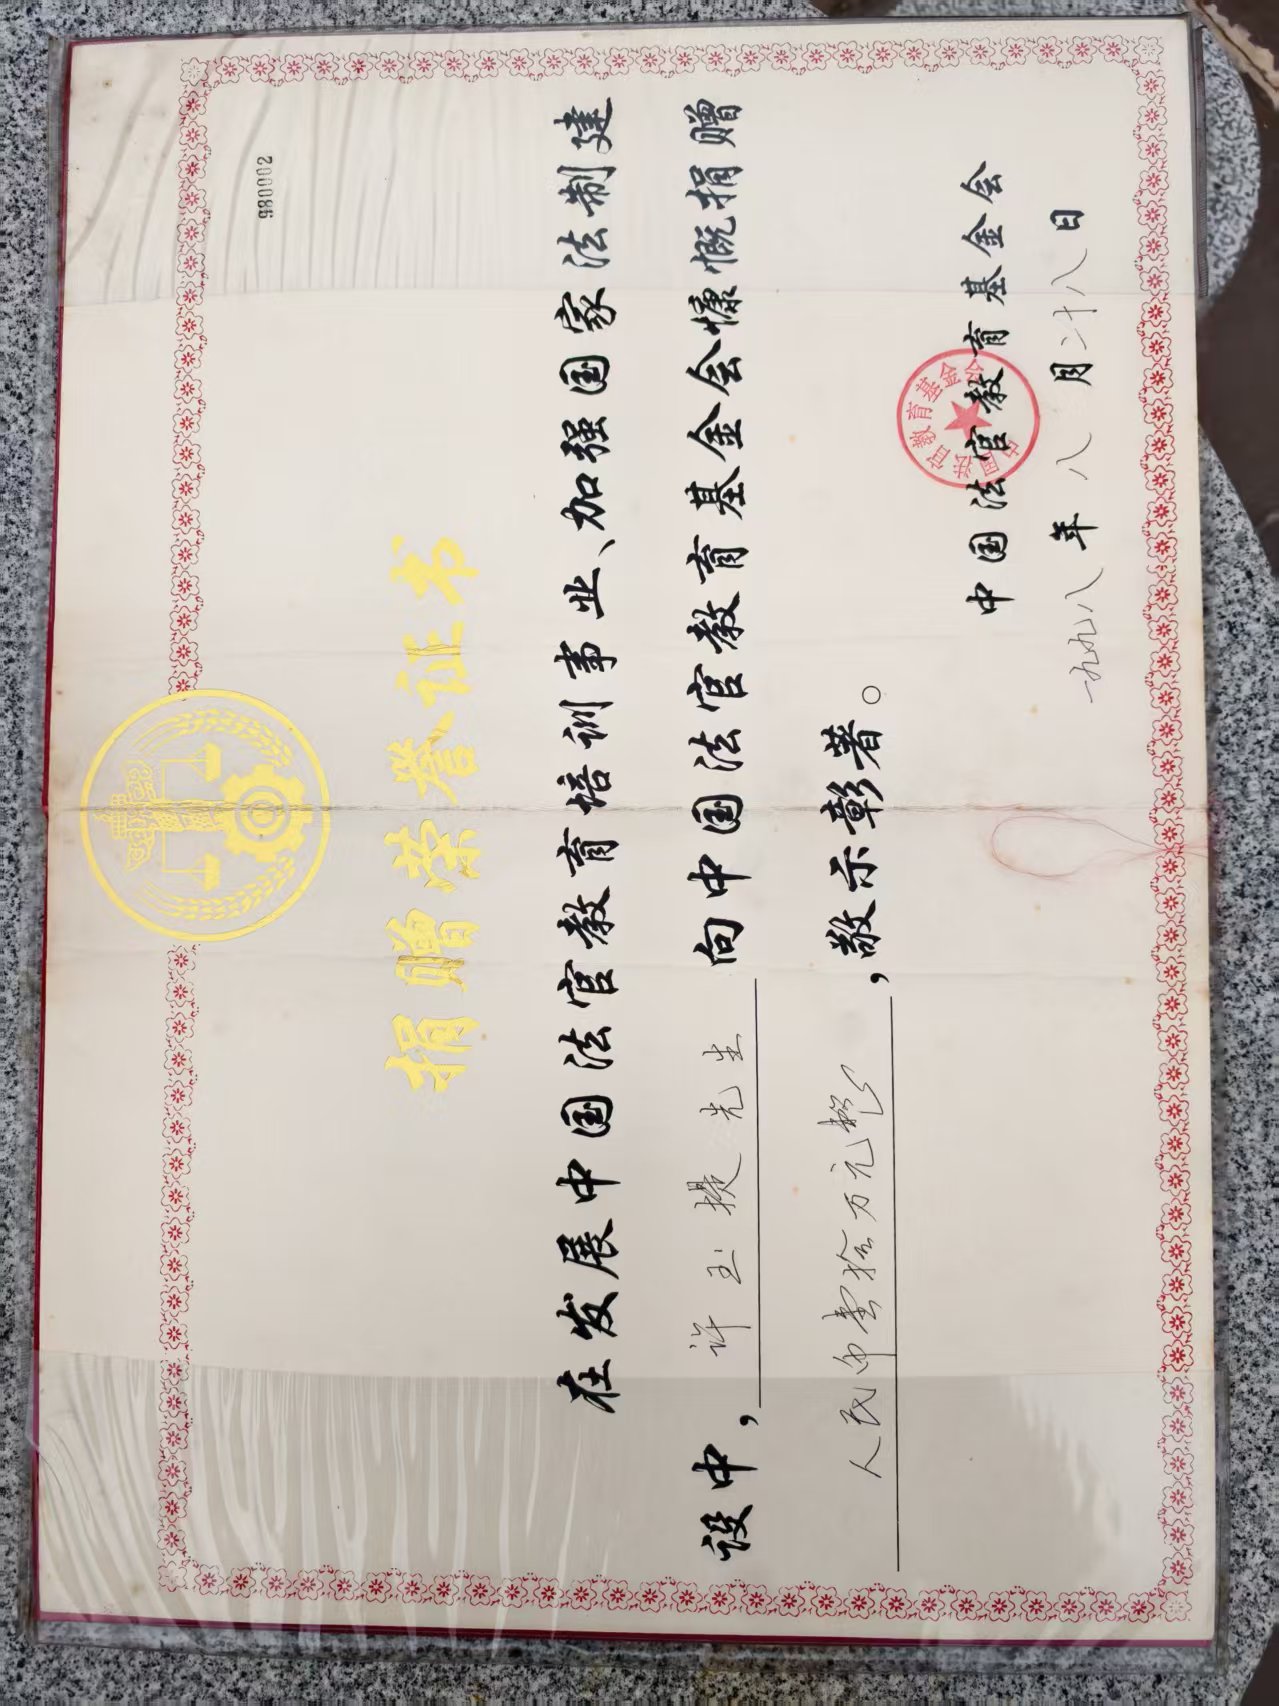 980002
捐赠荣誉证书
在发展中国法官教育培训事业、加强国家法制建
设中，许玉提先生 向中国法官教育基金会慷慨捐赠
人民币壹拾万元整，敬示彰著。
中国法官教育基金会
中国法官教育基金会
一九九八年八月二十八日